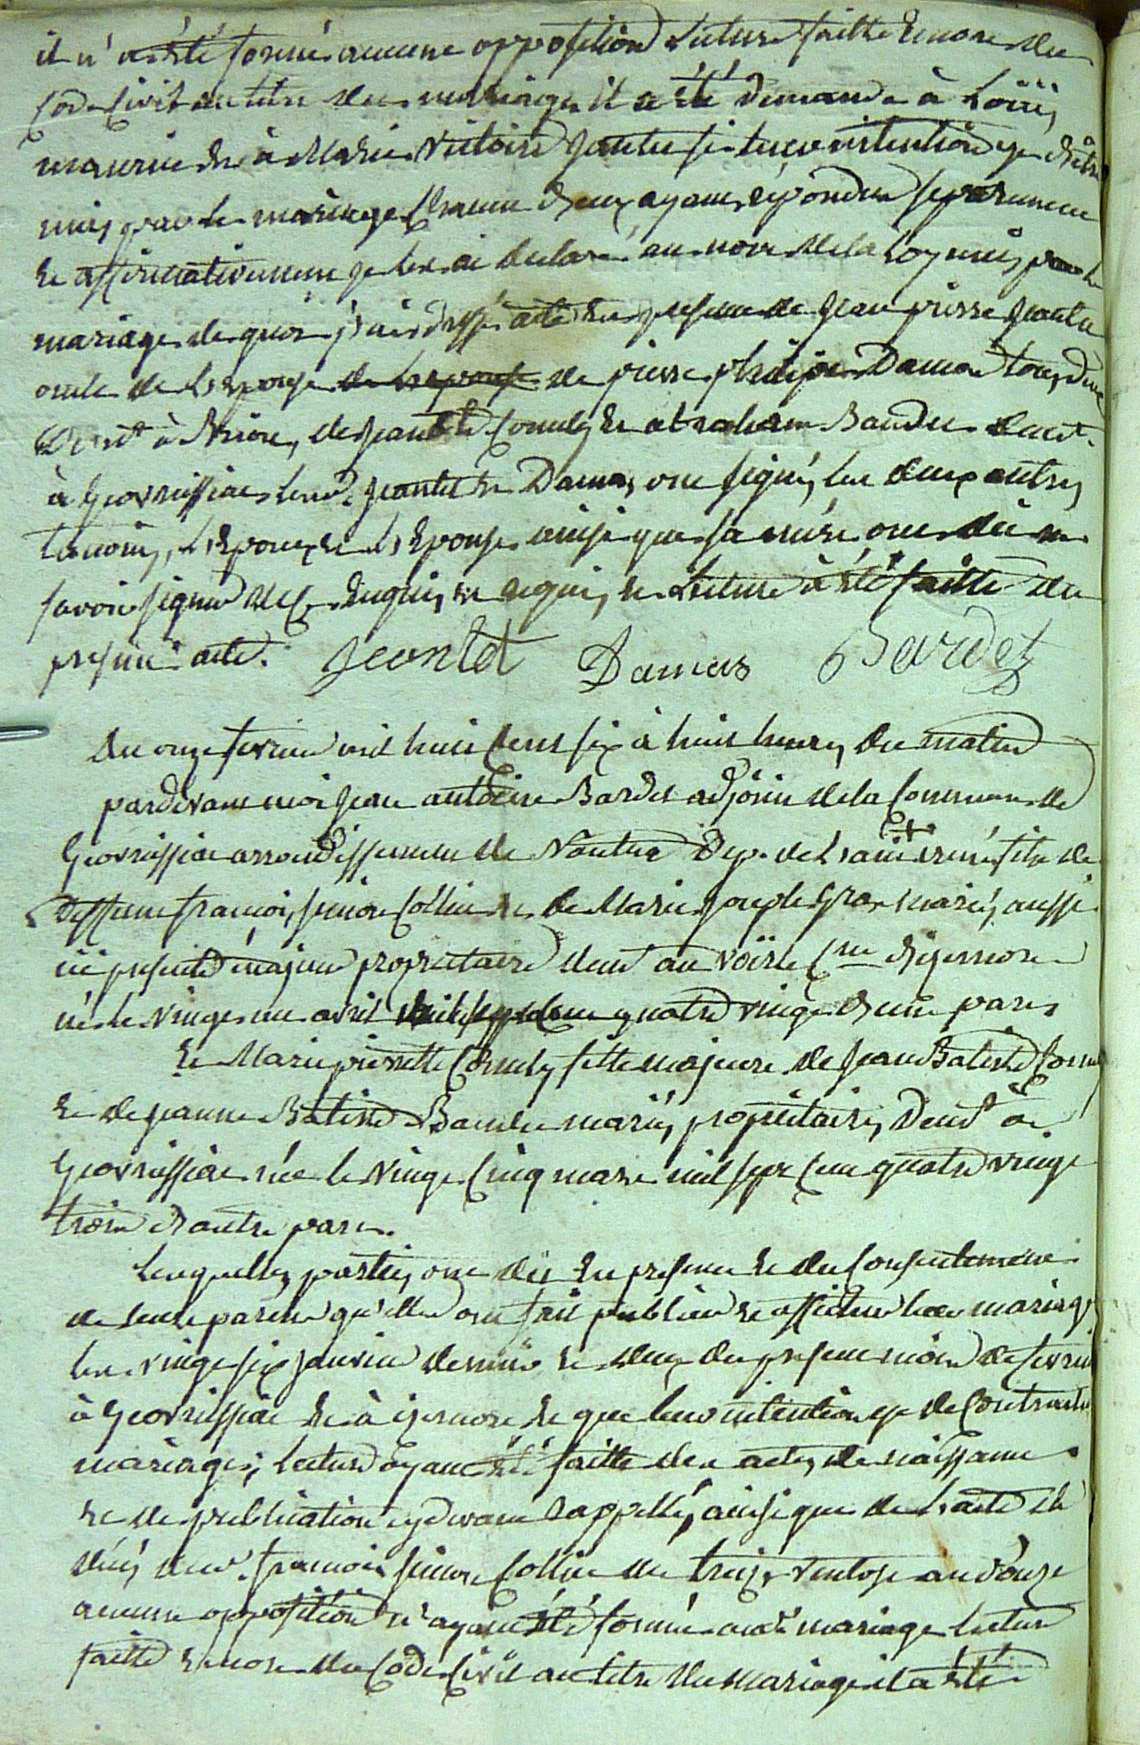 il n'a été formé aucune opposition Lecture faitte Encore du
Code Civil au titre du mariage, il a été Demandé à Loüis
maurice Et à Marie Victoire Jantet si leur intention est d'être
unis par le mariage Chacun d'eux ayant répondu séparement
Et affirmativement je les ai déclaré au nom de la Loy unis par le
mariage de quoi j'ai dressé acte En présence de Jean pierre Jeantet
oncle de L'Epouse de L'epouse de pierre philipe Damas tous deux
Demt à Brion, de Jean Bte Cornuty Et abraham Baudet demt
à Geovreissiat lesd. Jeantet Et Damas ont signé, les deux autres
témoins, L'Epoux et L'Epouse ainsi que sa mère ont dit ne
savoir signer de ce Enquis et requis, Et Lecture à été faitte du
present acte. Jeantet Damas Bardet
Du onze fevrier mil huit Cent six à huit heures Du matin
pardevant moi Jean antoine Bardet adjoint de la Commune de
Geovreissiat arrondissement de Nantua Dep. de L'ain +
fils de
deffunt francois Simon Collin Et de Marie Joseph Gros mariés, aussi
ici présente majeur propriétaire demt au voisin Cne d'igernore
né le vingt un avril mil sept Cent quatre vingt d'une part
Et Marie pierrette Cornuty fille majeure de Jean Batiste Cornuty
Et de Jeanne Batiste Baudet mariés, propriétaires, Demt à
Geovreissiat née le vingt Cinq mars mil sept Cent quatre vingt
trois d'autre part.
Lesquelles parties ont dit En presence Et du Consentement
de leurs parens qu'elles ont fait publier Et afficher leur mariage
les vingt six Janvier dernier Et deux du present mois de fevrier
à Geovreissiat Et à izernore Et que leur intention est de Contracter
mariage; Lecture ayant été faitte des actes de naissance
Et de publication cy devant rappellés, ainsi que de L'acte de
décés dud. francois Simon Collin du treize ventose an douze
aucune opposition n'ayant été formée aud. mariage Lecture
faitte Encore du Code Civil au titre du Mariage il a été